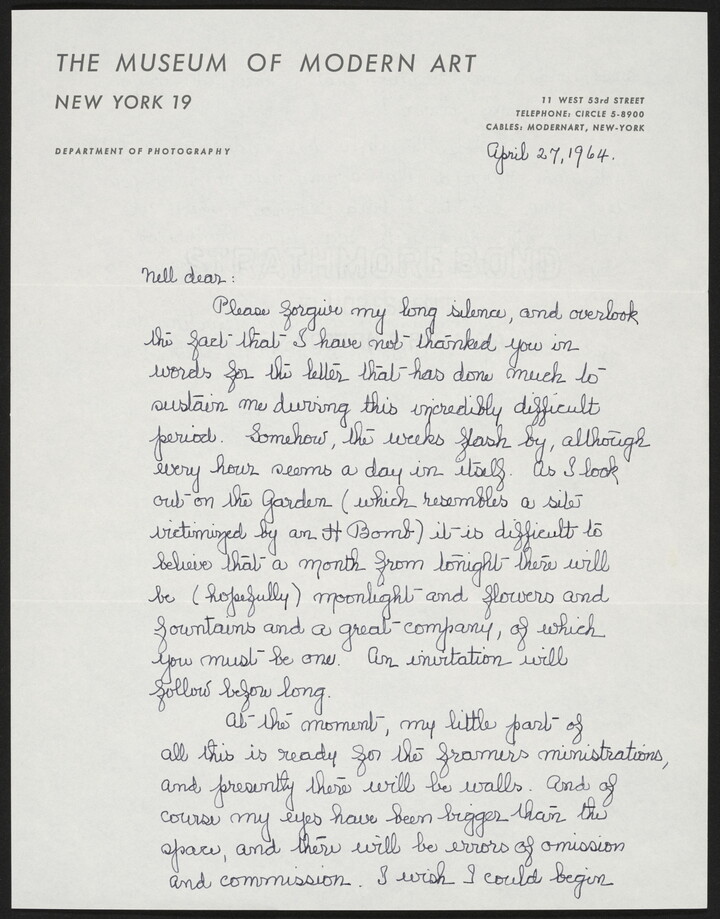 THE MUSEUM OF MODERN ART
NEW YORK 19
11 WEST 53rd STREET
TELEPHONE: CIRCLE 5-8900
CABLES: MODERNART, NEW-YORK
DEPARTMENT OF PHOTOGRAPHY
April 27, 1964.
STRATHMORE BOND
Nell dear:
Please forgive my long silence, and overlook
the fact that I have not thanked you in
words for the letter that has done much to
sustain me during this incredibly difficult
period. Somehow, the weeks flash by, although
every hour seems a day in itself. As I look
out on the Garden (which resembles a site
victimized by an H Bomb) it is difficult to
believe that a month from tonight there will
be (hopefully) moonlight and flowers and
fountains and a great company, of which
you must be one. An invitation will
follow before long.
At the moment, my little part of
all this is ready for the framers ministrations,
and presently there will be walls. And of
course my eyes have been bigger than the
space, and there will be errors of omission
and commission. I wish I could begin